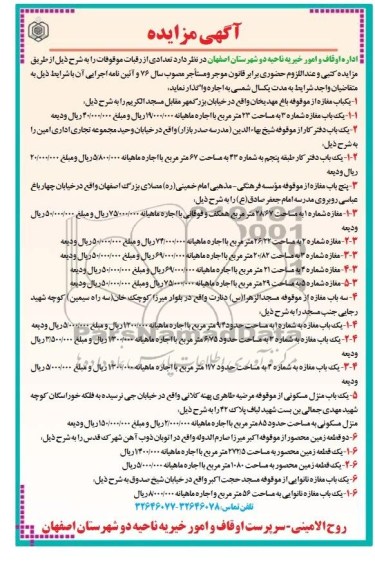 آگهی مزایده
اداره اوقاف و امور خیریه ناحیه دو شهرستان اصفهان در نظر دارد تعدادی از رقبات موقوفات را به شرح ذیل از طریق
مزایده کتبی و عنداللزوم حضوری برابر قانون موجر و مستأجر مصوب سال ۷۶ و آئین نامه اجرایی آن با شرایط ذیل به
متقاضیان واجد شرایط به مدت یکسال شمسی به اجاره واگذار نماید:
۱-یکباب مغازه از موقوفه باغ مهدیخان واقع در خیابان بزرگمهر مقابل مسجد الکریم را به شرح ذیل:
۱-۱-یک باب مغازه شماره ۳ به مساحت ۲۳ متر مربع با اجاره ماهیانه ۱۹/۰۰۰/۰۰۰ ریال و مبلغ ۴۰/۰۰۰/۰۰۰ ریال ودیعه
۲-یک باب دفتر کار از موقوفه شیخ بهاءالدین (مدرسه صدر بازار) واقع در خیابان وحید مجموعه تجاری اداری امین را
به شرح ذیل:
۱-۲-یک باب دفتر کار طبقه پنجم به شماره ۴۳ به مساحت ۶۷ متر مربع با اجاره ماهیانه ۵/۸۰۰/۰۰۰ ریال و مبلغ ۲۰/۰۰۰/۰۰۰
ریال ودیعه
۳-پنج باب مغازه از موقوفه مؤسسه فرهنگی-مذهبی امام خمینی (ره) مصلای بزرگ اصفهان واقع در خیابان چهارباغ
عباسی روبروی مدرسه امام جعفر صادق(ع) را به شرح ذیل:
۱-۳-مغازه شماره ۱ به مساحت ۲۸/۶۷ متر مربع همکف و فوقانی با اجاره ماهیانه ۷۵/۰۰۰/۰۰۰ ریال و مبلغ ۵۰/۰۰۰/۰۰۰ ریال
ودیعه
۲-۳-مغازه شماره ۲ به مساحت ۲۶/۲۲ متر مربع با اجاره ماهیانه ۷۲/۰۰۰/۰۰۰ ریال و مبلغ ۵۰/۰۰۰/۰۰۰ ریال ودیعه
۳-۳-مغازه شماره ۳ به مساحت ۲۰/۸۲ متر مربع با اجاره ماهیانه ۶۹/۰۰۰/۰۰۰ ریال و مبلغ ۵۰/۰۰۰/۰۰۰ ریال ودیعه
۴-۳-مغازه شماره ۴ به مساحت ۲۱ متر مربع با اجاره ماهیانه ۶۹/۰۰۰/۰۰۰ ریال و مبلغ ۵۰/۰۰۰/۰۰۰ ریال ودیعه
۵-۳-مغازه شماره ۵ به مساحت ۲۹ متر مربع با اجاره ماهیانه ۷۵/۰۰۰/۰۰۰ ریال و مبلغ ۵۰/۰۰۰/۰۰۰ ریال ودیعه
۴-سه باب مغازه از موقوفه مسجد الزهرا(س) دنارت واقع در بلوار میرزا کوچک خان(سه راه سیمین) کوچه شهید
رجایی جنب مسجد را به شرح ذیل:
۱-۴-یک باب مغازه به شماره ۱ به مساحت حدود ۹۲ متر مربع با اجاره ماهیانه ۱/۲۰۰/۰۰۰ ریال و مبلغ ۵/۰۰۰/۰۰۰ ریال ودیعه
۲-۴-یک باب مغازه به شماره ۲ به مساحت حدود ۶/۷۵ متر مربع با اجاره ماهیانه ۱/۲۰۰/۰۰۰ ریال و مبلغ ۳/۵۰۰/۰۰۰ ریال
ودیعه
۳-۴-یک باب مغازه به شماره ۳ به مساحت حدود ۱۱۷ متر مربع با اجاره ماهیانه ۱/۴۰۰/۰۰۰ ریال و مبلغ ۵/۰۰۰/۰۰۰ ریال
ودیعه
۵-یک باب منزل مسکونی از موقوفه مرضیه طاهری پهنه کلانی واقع در خیابان جی نرسیده به فلکه خوراسگان کوچه
شهید مهدی جمالی بن بست شهید لباف پلاک ۴۲ را به شرح ذیل:
منزل مسکونی به مساحت حدود ۸۵ متر با اجاره ماهیانه ۲/۰۰۰/۰۰۰ ریال و مبلغ ۱۵۰/۰۰۰/۰۰۰ ریال ودیعه
۶-دو قطعه زمین محصور از موقوفه اکبر میرزا صارم الدوله واقع در اتوبان ذوب آهن شهرک قدس را به شرح ذیل:
۱-۶-یک قطعه زمین محصور به مساحت ۲۷۲/۵ متر با اجاره ماهیانه ۱/۴۰۰/۰۰۰ ریال
۲-۶-یک قطعه زمین محصور به مساحت ۱۰۸۰ متر مربع با اجاره ماهیانه ۵/۰۰۰/۰۰۰ ریال
۷-یک باب مغازه نانوایی از موقوفه مسجد حجت اکبر واقع در خیابان شیخ صدوق به شرح ذیل:
۱-۶-یک باب مغازه نانوایی به مساحت ۵۶ متر مربع و اجاره ماهیانه ۸/۰۰۰/۰۰۰ ریال
تلفن تماس: ۳۲۶۴۶۰۷۸-۳۲۶۴۶۰۷۷
روح الامینی-سرپرست اوقاف و امور خیریه ناحیه دو شهرستان اصفهان